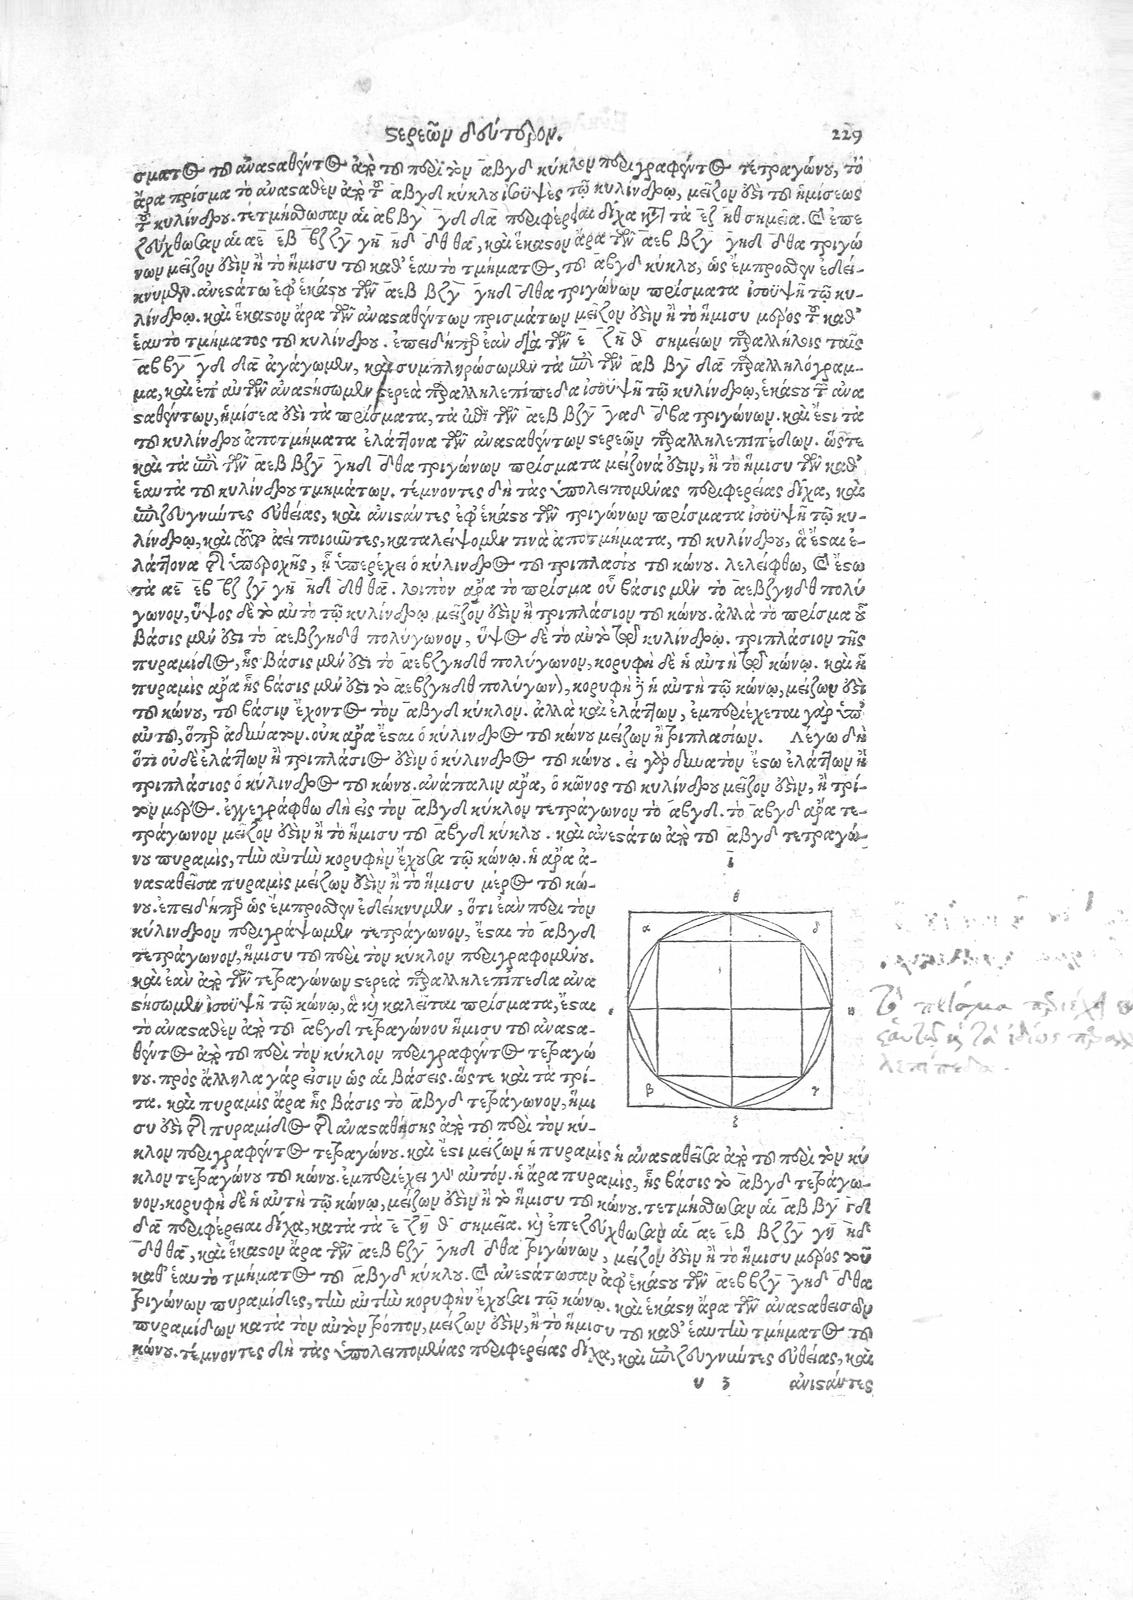 στερεῶν δεύτερον. 229
σματος τοῦ ἀνασταθέντος ἀπὸ τοῦ περὶ τὸν αβγδ κύκλον περιγραφέντος τετραγώνου, τὸ
ἄρα πρίσμα τὸ ἀνασταθὲν ἀπὸ τοῦ αβγδ κύκλου ἰσοϋψὲς τῷ κυλίνδρῳ, μεῖζον ἐστὶ τοῦ ἡμίσεως
τοῦ κυλίνδρου. τετμήσθωσαν αἱ αβ βγ γδ δα περιφέρειαι δίχα κατὰ τὰ εζ ηθ σημεῖα. καὶ ἐπε
ζεύχθωσαν αἱ αε εβ βζ ζγ γη ηδ δθ θα, καὶ ἕκαστον ἄρα τῶν αεβ βζγ γηδ δθα τριγώ
νων μεῖζον ἐστὶν ἢ τὸ ἥμισυ τοῦ καθ' ἑαυτὸ τμήματος, τοῦ αβγδ κύκλου, ὡς ἔμπροσθεν ἐδεί-
κνυμεν. ἀνεστάτω ἐφ' ἑκάστου τῶν αεβ βζγ γηδ δθα τριγώνων πρίσματα ἰσοϋψῆ τῷ κυ-
λίνδρῳ. καὶ ἕκαστον ἄρα τῶν ἀνασταθέντων πρισμάτων μεῖζον ἐστὶν ἢ τὸ ἥμισυ μέρος τοῦ καθ'
ἑαυτὸ τμήματος τοῦ κυλίνδρου. ἐπειδήπερ ἐὰν διὰ τῶν ε ζ η θ σημείων παραλλήλους ταῖς
αβ βγ γδ δα ἀγάγωμεν, καὶ συμπληρώσωμεν τὰ ἐπὶ τῶν αβ βγ δα παραλληλόγραμ-
μα, καὶ ἐπ' αὐτῶν ἀναστήσωμεν στερεὰ παραλληλεπίπεδα ἰσοϋψῆ τῷ κυλίνδρῳ, ἑκάστου τῶν ανα
σταθέντων, ἡμίσεα ἐστὶ τὰ πρίσματα, τὰ ἐπὶ τῶν αεβ βζγ γαδ δθα τριγώνων. καὶ ἔστι τὰ
τοῦ κυλίνδρου ἀποτμήματα ἐλάττονα τῶν ἀνασταθέντων στερεῶν παραλληλεπιπέδων. ὥστε
καὶ τὰ ἐπὶ τῶν αεβ βζγ γηδ δθα τριγώνων πρίσματα μείζονά ἐστιν, ἢ τὸ ἥμισυ τῶν καθ'
ἑαυτὰ τοῦ κυλίνδρου τμημάτων. τέμνοντες δὴ τὰς ὑπολειπομένας περιφερείας δίχα, καὶ
ἐπιζευγνύντες εὐθείας, καὶ ἀνιστάντες ἐφ' ἑκάστου τῶν τριγώνων πρίσματα ἰσοϋψῆ τῷ κυ-
λίνδρῳ, καὶ τοῦτο ἀεὶ ποιοῦντες, καταλείψομεν τινὰ ἀποτμήματα, τοῦ κυλίνδρου, ἃ ἔσται ἐ-
λάττονα τῆς ὑπεροχῆς, ᾗ ὑπερέχει ὁ κύλινδρος τοῦ τριπλασίου τοῦ κώνου. λελείφθω, καὶ ἔστω
τὰ αε εβ βζ ζγ γη ηδ δθ θα. λοιπὸν ἄρα τὸ πρίσμα οὗ βάσις μὲν τὸ αεβζγηδθ πολύ
γωνον, ὕψος δὲ τὸ αὐτὸ τῷ κυλίνδρῳ μεῖζον ἐστὶν ἢ τριπλάσιον τοῦ κώνου. ἀλλὰ τὸ πρίσμα οὗ
βάσις μὲν ἐστὶ τὸ αεβζγηδθ πολύγωνον, ὕψος δὲ τὸ αὐτὸ τῷ κυλίνδρῳ. τριπλάσιον τῆς
πυραμίδος, ἧς βάσις μὲν ἐστὶ τὸ αεβζγηδθ πολύγωνον, κορυφὴ δὲ ἡ αὐτὴ τῷ κώνῳ. καὶ ἡ
πυραμὶς ἄρα ἧς βάσις μὲν ἐστὶ τὸ αεβζγηδθ πολύγωνον, κορυφὴ δὲ ἡ αὐτὴ τῷ κώνῳ, μείζων ἐστὶ
τοῦ κώνου, τοῦ βάσιν ἔχοντος τὸν αβγδ κύκλον. ἀλλὰ καὶ ἐλάττων, ἐμπεριέχεται γὰρ ὑπ'
αὐτοῦ, ὅπερ ἀδύνατον. οὐκ ἄρα ἔσται ὁ κύλινδρος τοῦ κώνου μείζων ἢ τριπλασίων. Λέγω δὴ
ὅτι οὐδὲ ἐλάττων ἢ τριπλάσιος ἐστὶν ὁ κύλινδρος τοῦ κώνου. εἰ γὰρ δυνατὸν ἔστω ἐλάττων ἢ
τριπλάσιος ὁ κύλινδρος τοῦ κώνου. ἀνάπαλιν ἄρα, ὁ κῶνος τοῦ κυλίνδρου μεῖζον ἐστὶν, ἢ τρί-
τον μέρος. ἐγγεγράφθω δὴ εἰς τὸν αβγδ κύκλον τετράγωνον τὸ αβγδ. τὸ αβγδ ἄρα τε-
τράγωνον μεῖζον ἐστὶν ἢ τὸ ἥμισυ τοῦ αβγδ κύκλου. καὶ ἀνεστάτω ἀπὸ τοῦ αβγδ τετραγώ-
νου πυραμὶς, τὴν αὐτὴν κορυφὴν ἔχουσα τῷ κώνῳ. ἡ ἄρα ἀ-
νασταθεῖσα πυραμὶς μείζων ἐστὶν ἢ τὸ ἥμισυ μέρος τοῦ κώ-
νου. ἐπειδήπερ ὡς ἔμπροσθεν ἐδείκνυμεν, ὅτι ἐὰν περὶ τὸν
κύλινδρον περιγράψωμεν τετράγωνον, ἔσται τὸ αβγδ
τετράγωνον, ἥμισυ τοῦ περὶ τὸν κύκλον περιγραφομένου.
καὶ ἐὰν ἀπὸ τῶν τετραγώνων στερεὰ παραλληλεπίπεδα ἀνα
στήσωμεν ἰσοϋψῆ τῷ κώνῳ, ἃ καὶ καλεῖται πρίσματα, ἔσται
τὸ ἀνασταθὲν ἀπὸ τοῦ αβγδ τετραγώνου ἥμισυ τοῦ ἀναστα-
θέντος ἀπὸ τοῦ περὶ τὸν κύκλον περιγραφέντος τετραγώ
νου. πρὸς ἄλληλα γάρ εἰσιν ὡς αἱ βάσεις. ὥστε καὶ τὰ τρί-
τα. καὶ πυραμὶς ἄρα ἧς βάσις τὸ αβγδ τετράγωνον, ἥμι
συ ἐστὶ τῆς πυραμίδος τῆς ἀνασταθείσης ἀπὸ τοῦ περὶ τὸν κύ-
κλον περιγραφέντος τετραγώνου. καὶ ἔστι μείζων ἡ πυραμὶς ἡ ἀνασταθεῖσα ἀπὸ τοῦ περὶ τὸν κύ
κλον τετραγώνου τοῦ κώνου. ἐμπεριέχει γὰρ αὐτόν. ἡ ἄρα πυραμὶς, ἧς βάσις τὸ αβγδ τετράγω-
νον, κορυφὴ δὲ ἡ αὐτὴ τῷ κώνῳ, μείζων ἐστὶν ἢ τὸ ἥμισυ τοῦ κώνου. τετμήσθωσαν αἱ αβ βγ γδ
δα περιφέρειαι δίχα, κατὰ τὰ ε ζ η θ σημεῖα. καὶ ἐπεζεύχθωσαν αἱ αε εβ βζ ζγ γη ηδ
δθ θα, καὶ ἕκαστον ἄρα τῶν αεβ βζγ γηδ δθα τριγώνων, μεῖζον ἐστὶν ἢ τὸ ἥμισυ μέρος τοῦ
καθ' ἑαυτὸ τμήματος τοῦ αβγδ κύκλου. καὶ ἀνεστάτωσαν ἀφ' ἑκάστου τῶν αεβ βζγ γηδ δθα
τριγώνων πυραμίδες, τὴν αὐτὴν κορυφὴν ἔχουσαι τῷ κώνῳ. καὶ ἑκάστη ἄρα τῶν ἀνασταθεισῶν
πυραμίδων κατὰ τὸν αὐτὸν τρόπον, μείζων ἐστὶν, ἢ τὸ ἥμισυ τοῦ καθ' ἑαυτὴν τμήματος τοῦ
κώνου. τέμνοντες δὴ τὰς ὑπολειπομένας περιφερείας δίχα, καὶ ἐπιζευγνύντες εὐθείας, καὶ
υ 3 ἀνιστάντες
ε
θ
α δ
β γ
ζ